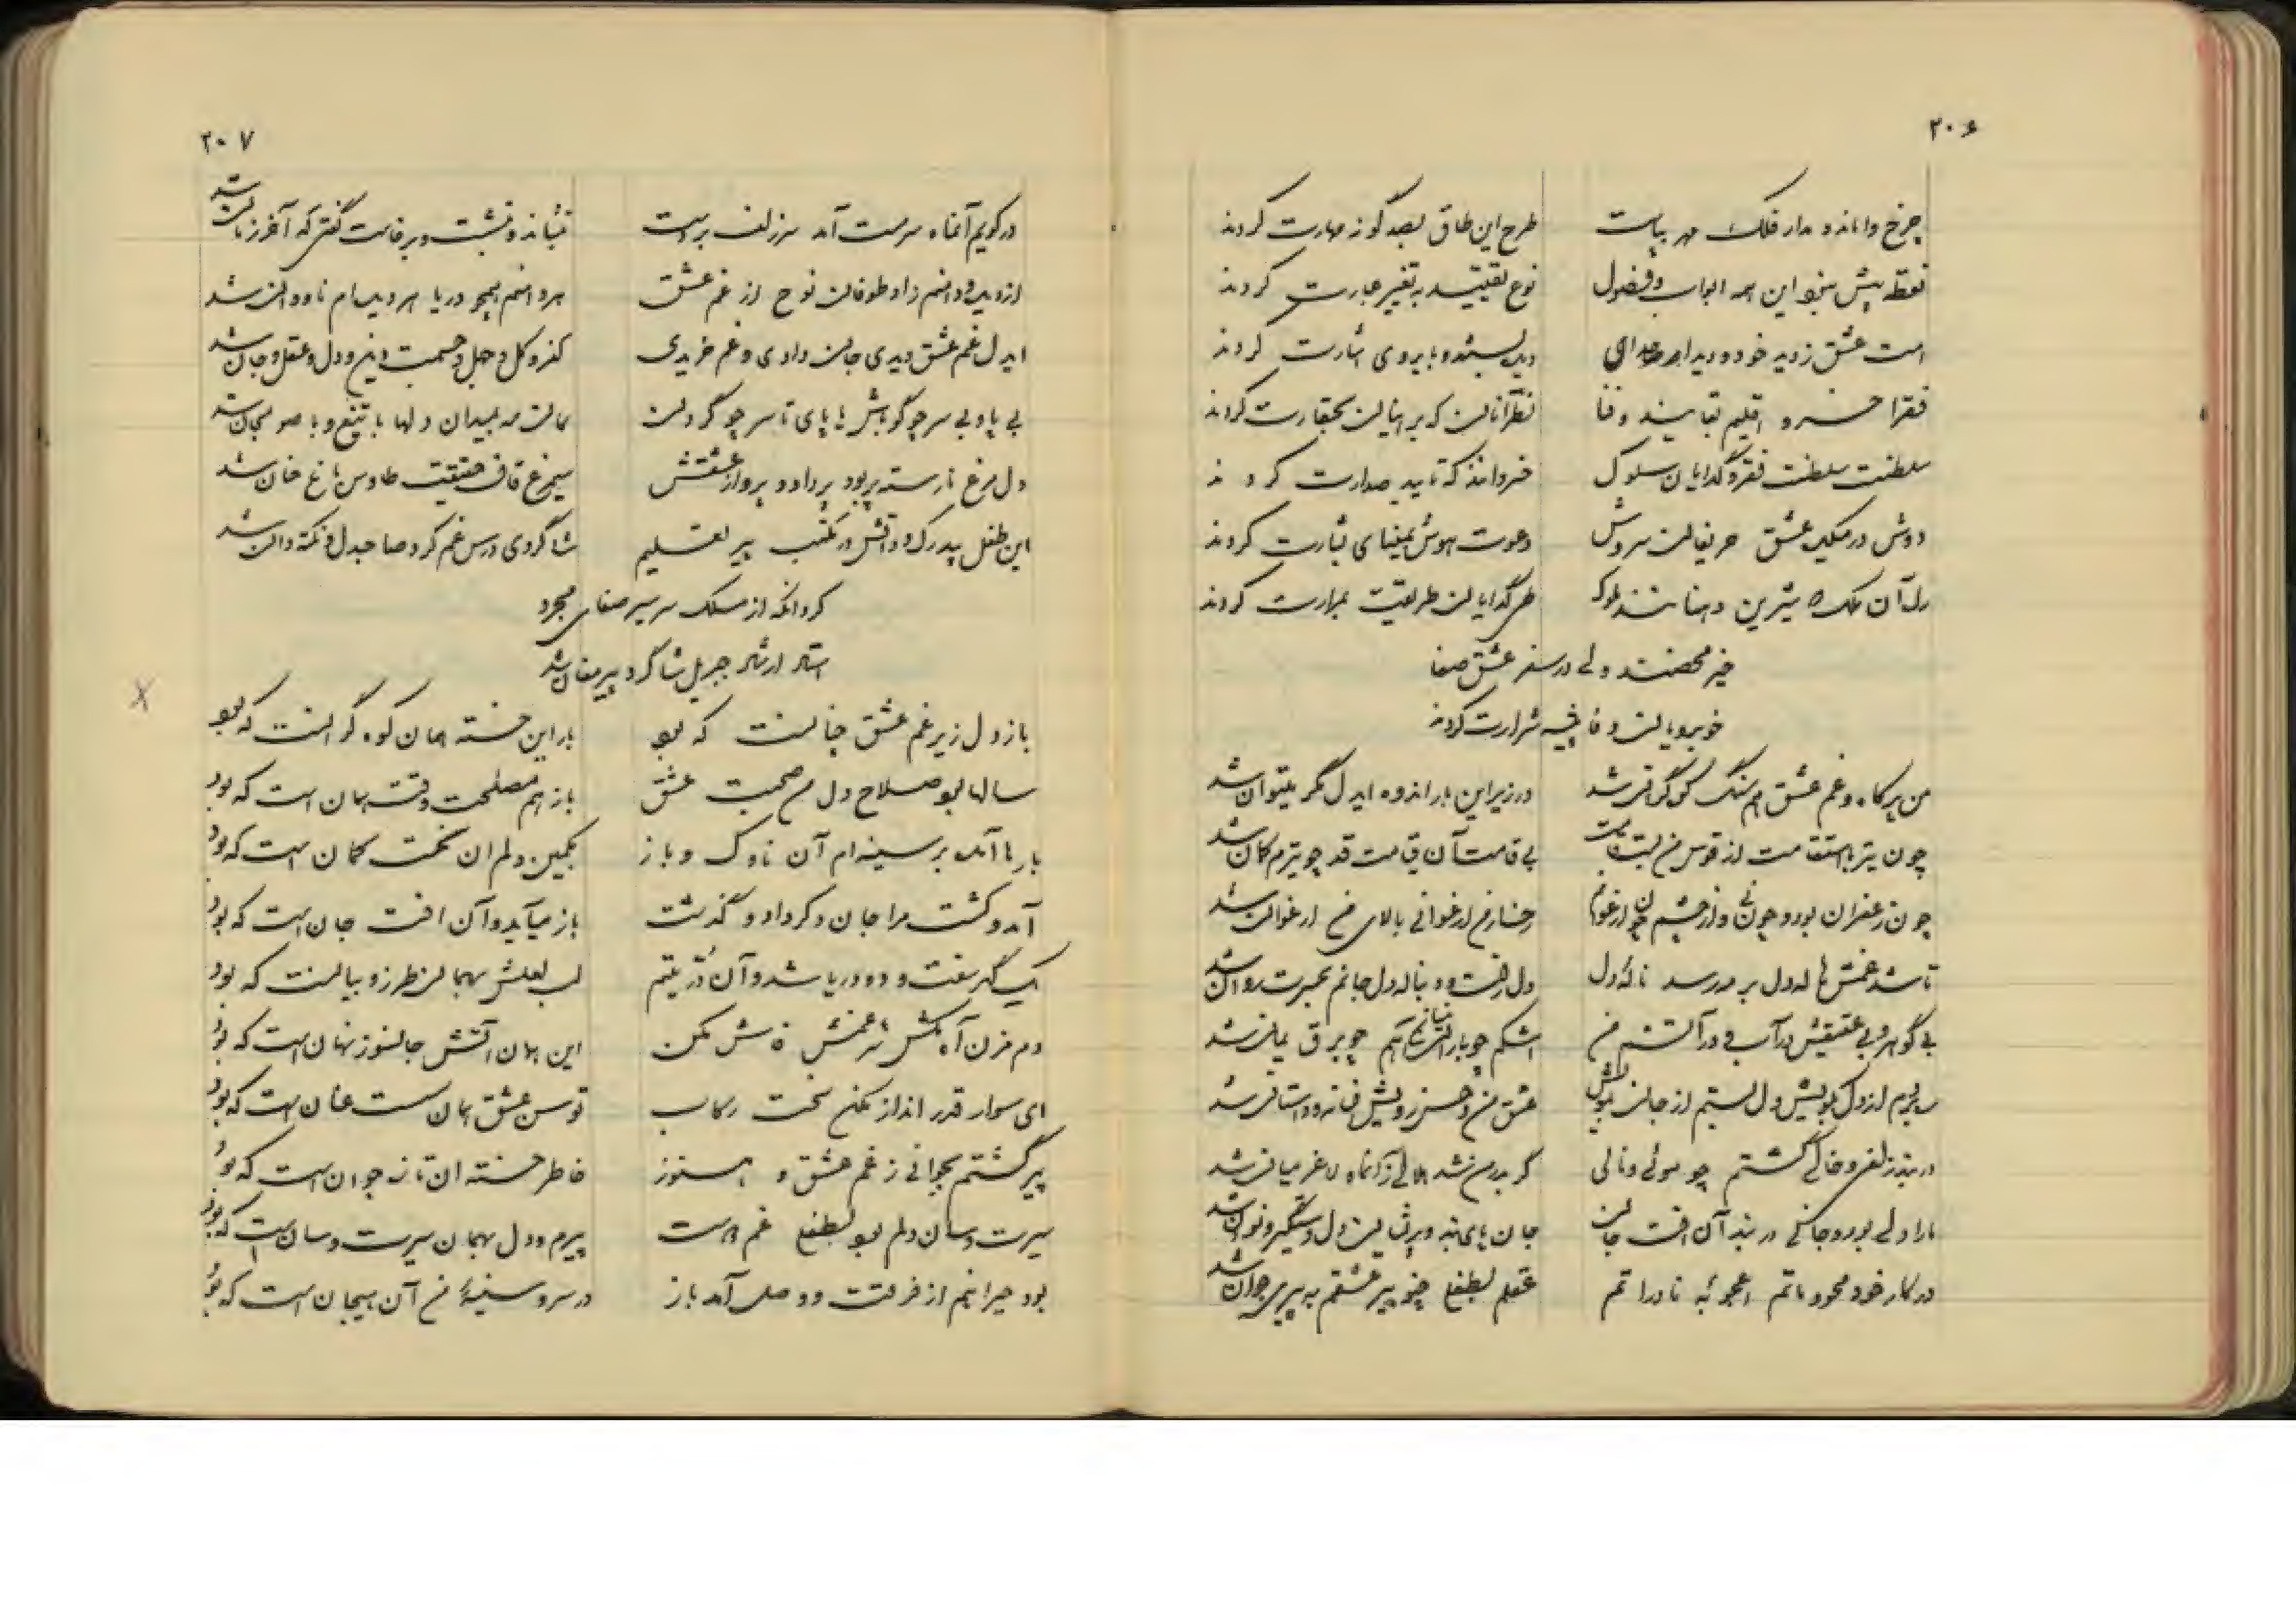 ۲۰۶
چرخ وا مانده مدار فلک مهر بپاست طرح این طاق بصد گونه مهارت کردند
نقطه پیش نبود این همه ابواب و فصول نوع تقیید به تغییر عبارت کردند
است عشق ز دید خود و دیدار دید بستند و بابروی اشارت کردند
فقرا خسرو اقلیم بقایند و فنا نظر آنان که بر اینان بحقارت کردند
سلطنت سلطنت فقر و گدایان سلوک خسروانند که تایید صدارت کردند
دوش در میکده عشق حریفان سروش دعوت هوش بمینای بشارت کردند
دل آن ملک که شیرین دهنانند ملوک طی گدایان طریقت بمرارت کردند
خیر محضند ولی در سفر عشق صفا
خوبرویان وفا پیشه شرارت کردند
من پر کاه و غم عشق هم سنگ کوه گران شد در زیر این بار اندوه ایدل مگر میتوان شد
چون تیر با استقامت از قوس من بی قامت آن قیامت قد چو تیرم کمان شد
چون زعفران بود و چون نی و از چشم چون ارغوانم رخسار من ارغوانی بالای من ارغوان شد
تا شد غمش ناله دل بر مه رسد ناله دل دل رفت و دنباله دل جانم بحسرت روان شد
بی گوهر و بی عقیقش در آب و در آتشم من اشکم چو باران آهم چو برق یمان شد
ببریدم از دل بویش دل بستم از جان بمویش عشق من و حسن رویش افسانه و داستان شد
در بند زلف و خالی گشتم چو موئی و نالی گر بدر من شد هلالی زانماه لاغر میان شد
ما را دلی بود و جانی در بند آن آفت جان جان پای بند و پریشان دل دستگیر و نوان شد
در کار خود محو و ماتم اعجوبه نادراتم عقلم بطفلی چو پیر عشقم به پیری جوان شد
۲۰۷
در کویم آنماه سرمست آمد سر زلف بر دست بنشاند و بنشست و برخاست گفتی که آخر زمان شد
از دیده و دلم داد طوفان نوح از غم عشق هر دامنم همچو دریا هر دیده ام ناودان شد
ایدل غم عشق دیدی جان دادی و غم خریدی کفر و کل و جهل و جسمت دین و دل و عقل و جان شد
بی پا و بی سر چو گو باش یا پای تا سر چو گردان مه بمیدان دلها با تیغ و با صولجان شد
دل مرغ نارسته پر بود پر داد و پرواز عشقش سیمرغ قاف حقیقت طاوس باغ جنان شد
این طفل پدر کرده دانش در مکتب پیر تعلیم شاگردی درس غم کرد صاحبدل و نکته دان شد
کرد آنکه از مسلک سر سیر صفای مجرد
استاد ارشاد جبریل شاگرد پیر مغان شد
باز دل زیر غم عشق چنانست که بود بار این خسته همان کوه گرانست که بود
سالها بود صلاح دل من صحبت عشق باز هم مصلحت وقت همان است که بود
بارها آمد بر سینه ام آن ناوک و باز بکمین دلم آن سخت کمان است که بود
آمد و کشت مرا جان دگر داد و گذشت باز میآید و آن آفت جان است که بود
یک گهر سفت و دو دریا شد و آن در یتیم لب لعلش بهمان طرز و بیانست که بود
دم مزن آه مکش غمش فاش مکن این همان آتش جانسوز نهان است که بود
ای سوار قدر انداز مکن سخت رکاب توسن عشق همان سست عنان است که بود
پیر گشتم بجوانی ز غم عشق و هنوز خاطر خسته آن تازه جوان است که بود
سیرت و سان دلم بود بطفلی غم دوست پیرم و دل بهمان سیرت و سان است که بود
بود حیرانیم از فرقت و وصل آمد باز در سر و سینه من آن هیجان است که بود